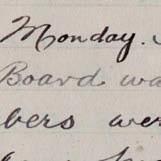 Monday.
Board wa
bers wer